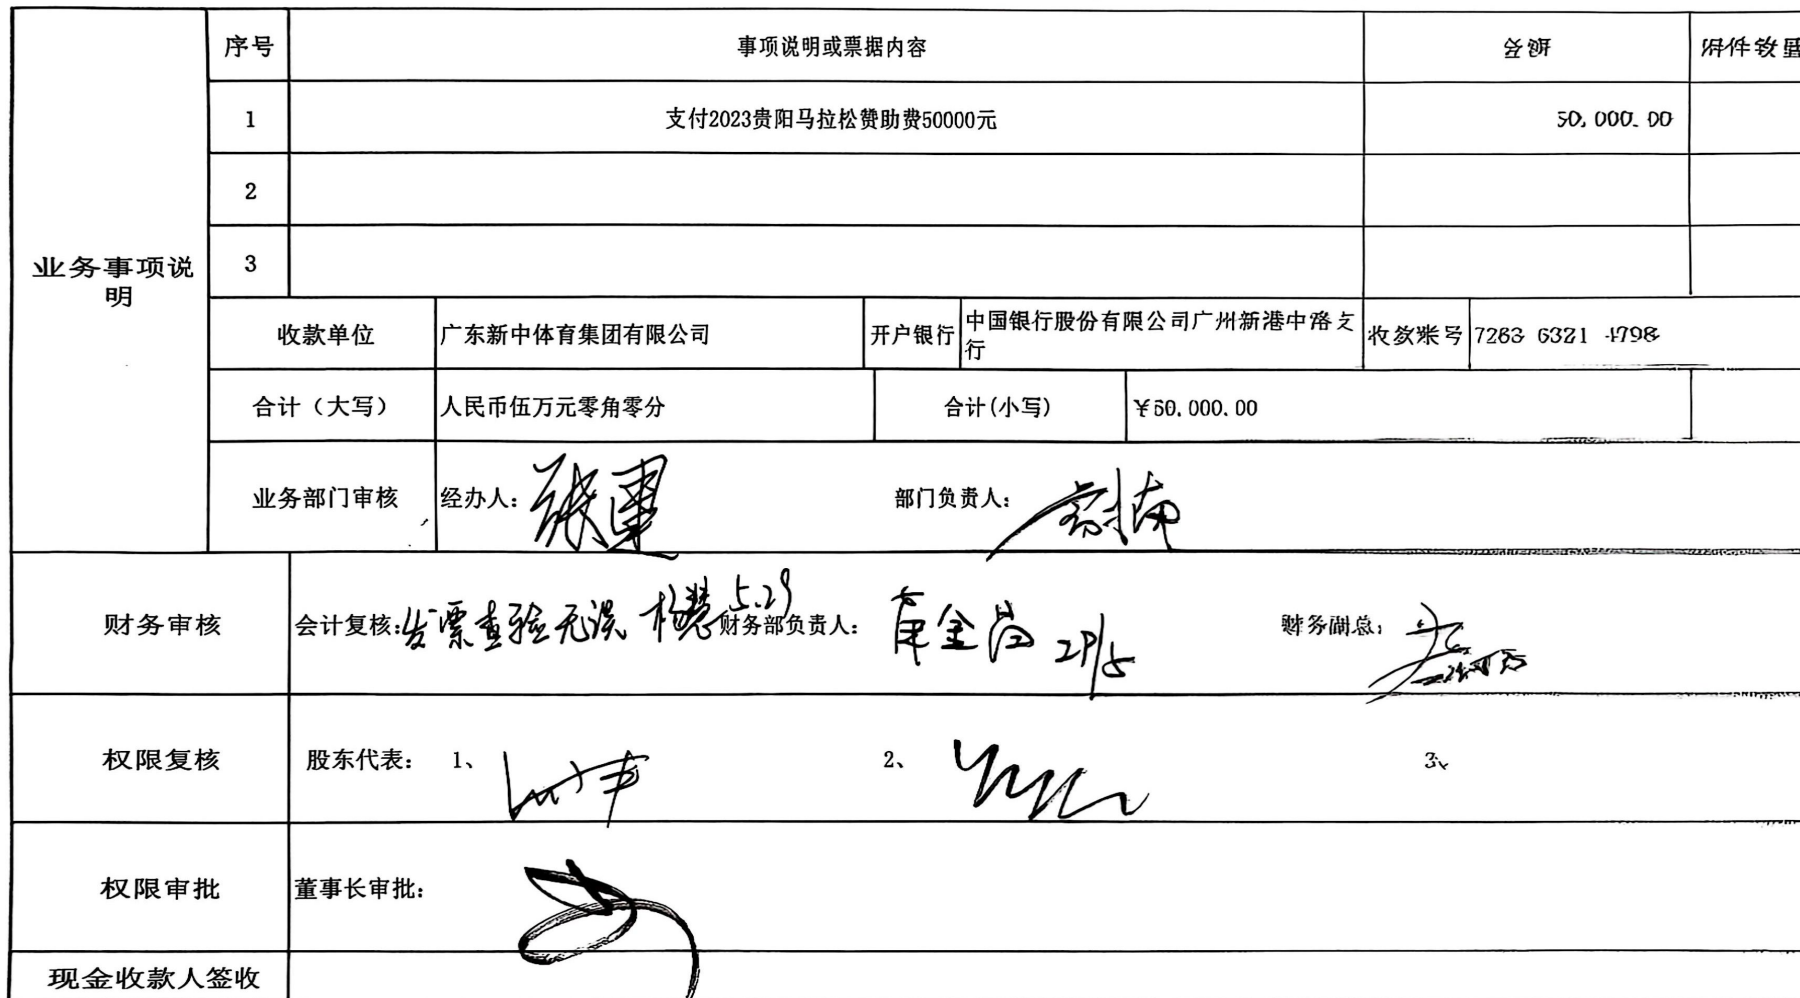 序号 事项说明或票据内容 金额 附件数量
1 支付2023贵阳马拉松赞助费50000元 50,000.00
2
3
业务事项说
明
收款单位 广东新中体育集团有限公司 开户银行 中国银行股份有限公司广州新港中路支
行 收款账号 7263 6321 4798
合计（大写） 人民币伍万元零角零分 合计(小写) ¥50,000.00
业务部门审核 经办人: 部门负责人:
财务审核 会计复核: 发票查验无误 5.29 财务部负责人: 29/5 财务副总:
权限复核 股东代表: 1、 2、 3、
权限审批 董事长审批:
现金收款人签收